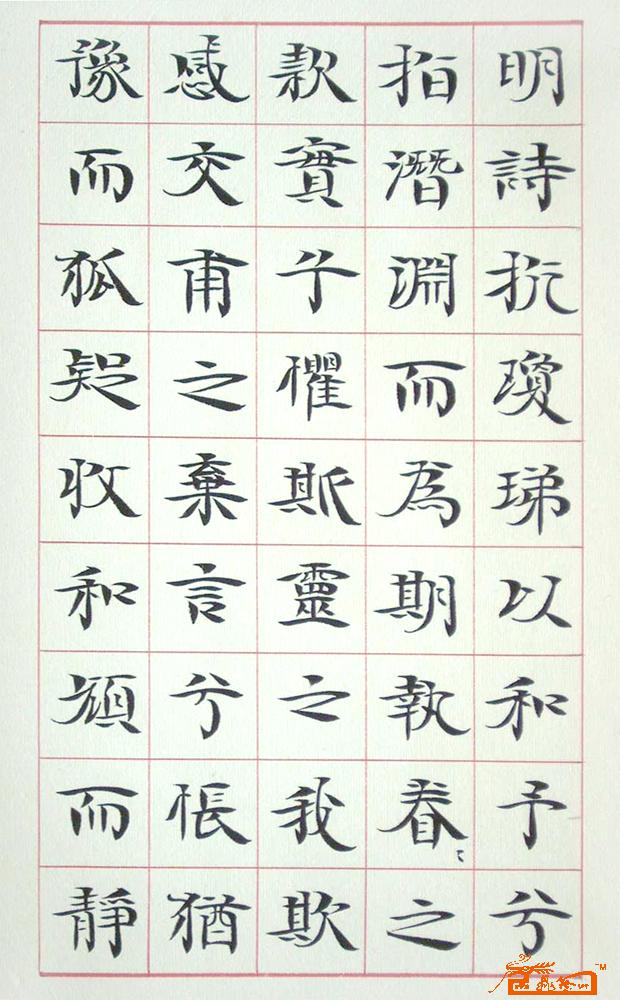 明詩抗瓊珶以和予兮
指潛淵而為期執眷〻之
款實兮懼斯靈之我欺
感交甫之棄言兮悵猶
豫而狐疑收和顏而靜
TM